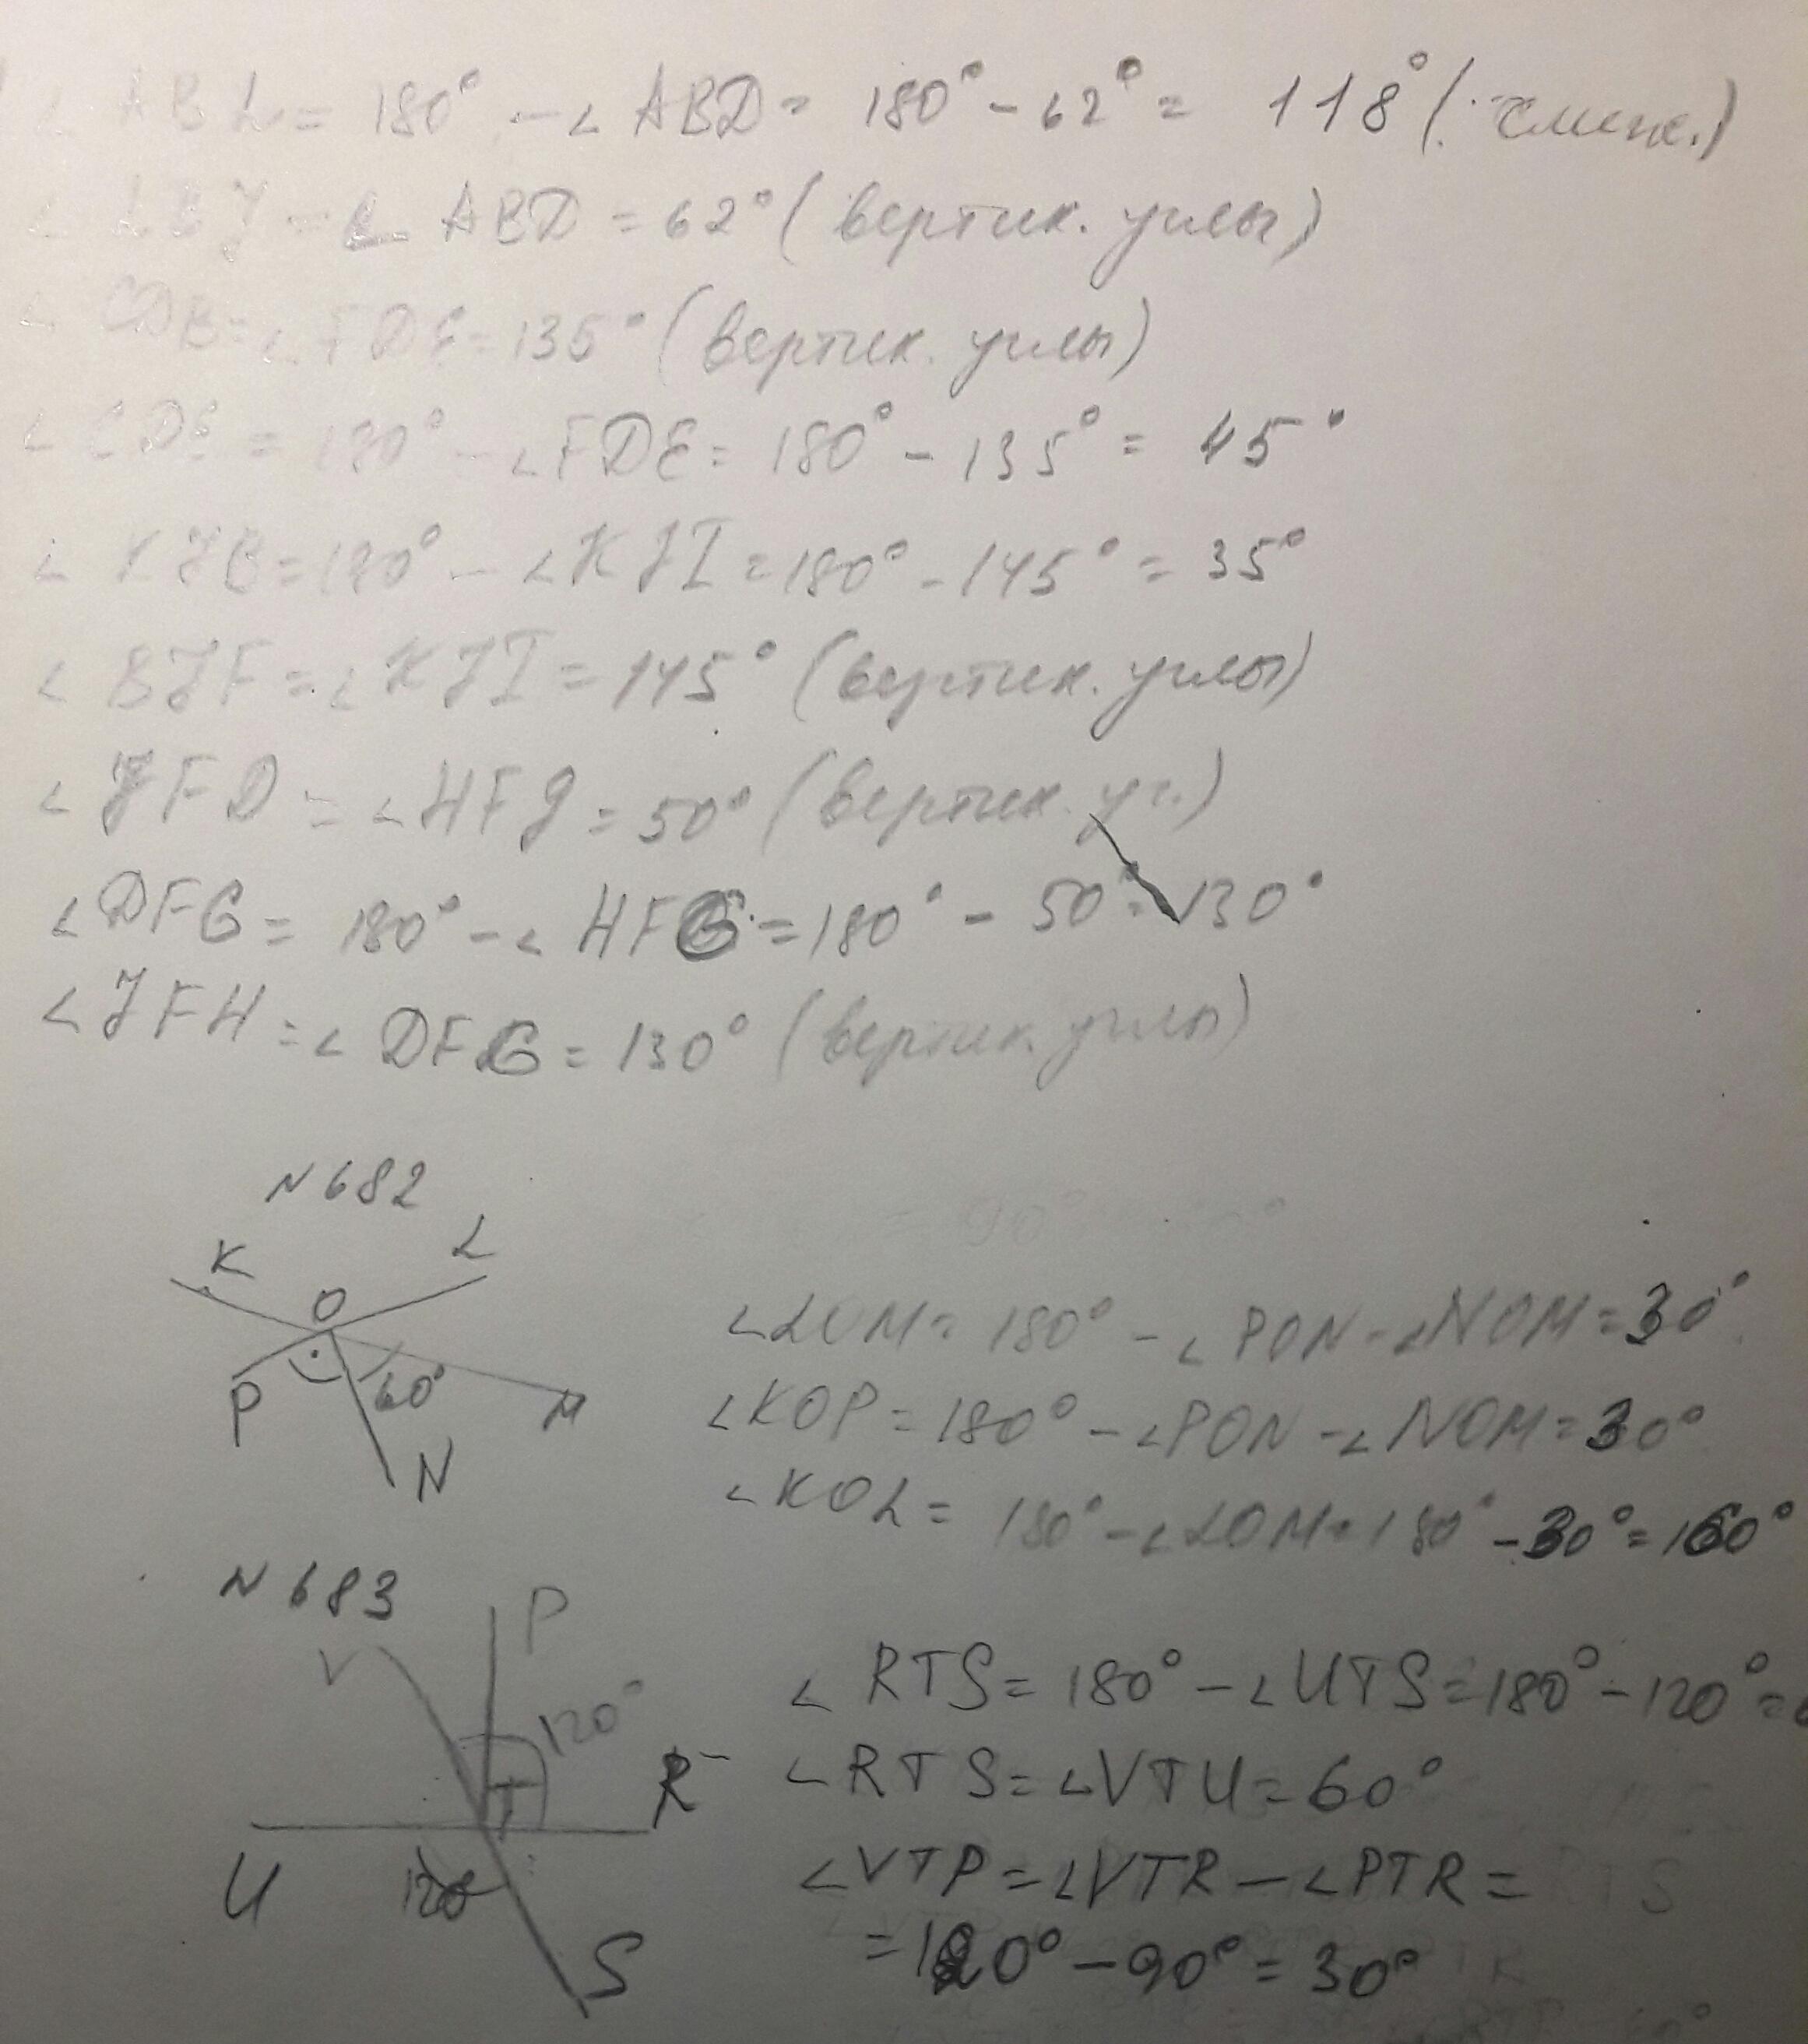 ∠ABL = 180° - ∠ABD = 180° - 62° = 118° (смеж.)
∠LBJ = ∠ABD = 62° (вертик. углы)
∠CDB = ∠FDE = 135° (вертик. углы)
∠CDE = 180° - ∠FDE = 180° - 135° = 45°
∠KJB = 180° - ∠KJI = 180° - 145° = 35°
∠BJF = ∠KJI = 145° (вертик. углы)
∠JFD = ∠HFG = 50° (вертик. уг.)
∠DFG = 180° - ∠HFG = 180° - 50° = 130°
∠JFH = ∠DFG = 130° (вертик. углы)
N682
K
L
O
P
60°
M
N
∠LOM = 180° - ∠PON - ∠NOM = 30°
∠KOP = 180° - ∠PON - ∠NOM = 30°
∠KOL = 180° - ∠LOM = 180° - 30° = 160°
N683
P
V
120°
T
R
U
120
S
∠RTS = 180° - ∠UTS = 180° - 120° =
∠RTS = ∠VTU = 60°
∠VTP = ∠VTR - ∠PTR =
= 120° - 90° = 30°